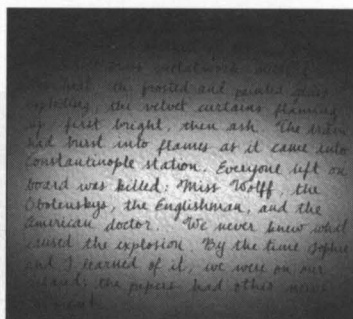 metalwork
the frosted and painted glass
exploding, the velvet curtains flaming
up, first bright, then ash. The train
had burst into flames as it came into
Constantinople station. Everyone left on
board was killed: Miss Wolff, the
Obolenskys, the Englishman, and the
American doctor. We never knew what
caused the explosion. By the time Sophie
and I learned of it, we were on our
island; the papers had other news